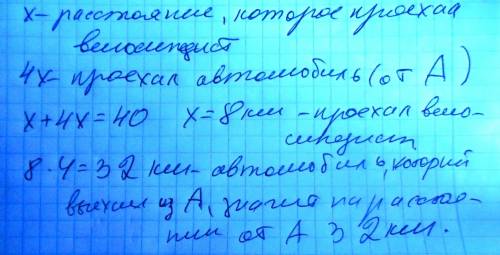 x - расстояние, которое проехал
велосипедист
4x - проехал автомобиль (от А)
x+4x=40 x=8км - проехал вело-
сипедист
8·4=32км - автомобиль, который
выехал из А, значит на расстоя-
нии от А 32км.